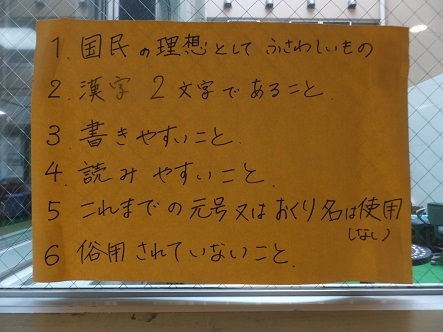 1. 国民の理想としてふさわしいもの
2. 漢字2文字であること.
3 書きやすいこと.
4. 読みやすいこと.
5 これまでの元号又はおくり名は使用
しない)
6 俗用されていないこと.